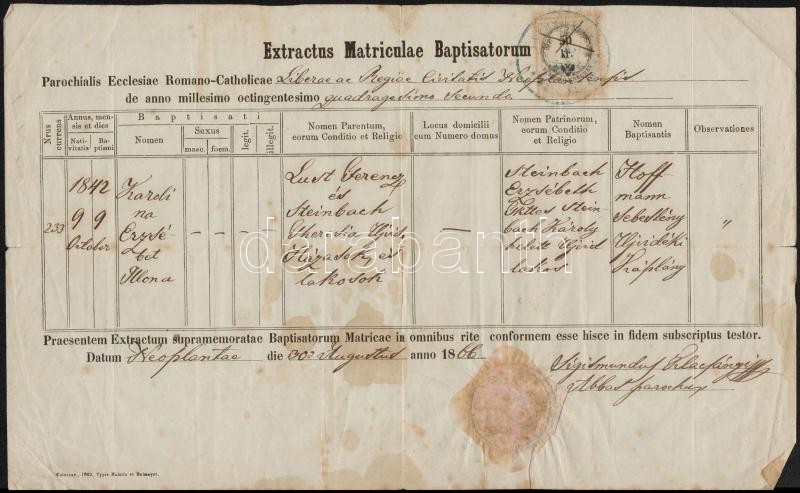 Extractus Matriculae Baptisatorum
50 kr.
Parochialis Ecclesiae Romano-Catholicae Liberae ac Regiae Civitatis Neoplantensis
de anno millesimo octingentesimo quadragesimo secundo
Nrus currens
Annus, mensis et dies
Nativitatis
Baptismi
Baptisati
Nomen
Sexus
masc.
foem.
legit.
illegit.
Nomen Parentum, eorum Conditio et Religio
Locus domicilii cum Numero domus
Nomen Patrinorum, eorum Conditio et Religio
Nomen Baptisantis
Observationes
233
1842
9 9
October
Karoli
na
Erzsé
bet
Ilona
- - - -
Lust Ferencz
és
Steinbach
Theresia Ujvid.
Házasok, és
lakosok
—
Steinbach
Erzsébeth
Stein-
bach Károly
Ujvid
lakos
Hoff
mann
Sebestény
Ujvidéki
Káplány
"
darabanth
Praesentem Extractum supramemoratae Baptisatorum Matricae in omnibus rite conformem esse hisce in fidem subscriptus testor.
Datum Neoplantae die 30a Augustus anno 1866
Sigismundus
Abbas parochus